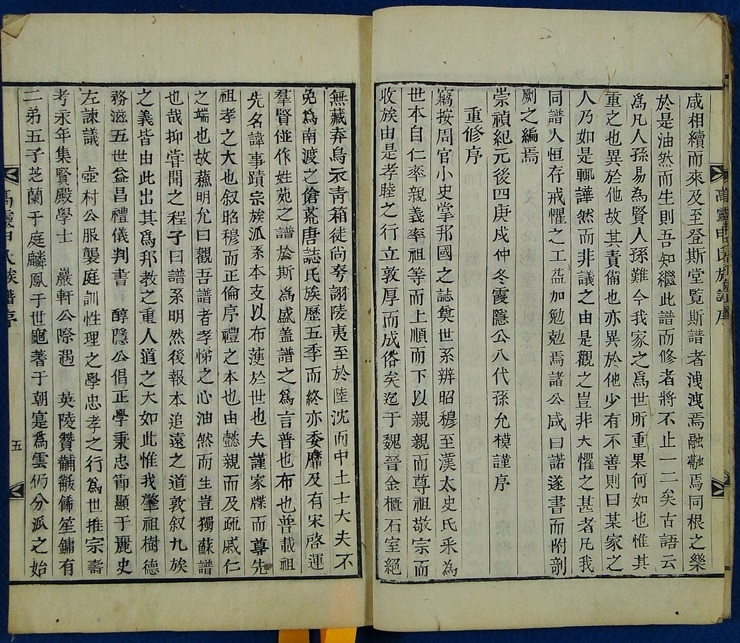 咸相續而來及至登斯堂覽斯譜者洩洩焉融融焉同根之樂
於是油然而生則吾知繼此譜而修者將不止一二矣古語云
爲凡人孫易爲賢人孫難今我家之爲世所重果何如也惟其
重之也異於他故其責備也亦異於他少有不善則曰某家之
人乃如是輒譁然而非議之由是觀之豈非大懼之甚者凡我
同譜人恒存戒懼之工益加勉勉焉諸公咸曰諾遂書而附剞
劂之編焉
崇禎紀元後四庚戌仲冬霞隱公八代孫允模謹序
重修序
竊按周官小史掌邦國之誌奠世系辨昭穆至漢太史氏采爲
世本自仁率親義率祖等而上順而下以親親而尊祖敬宗而
收族由是孝睦之行立敦厚而成俗矣迄于魏晉金櫃石室絕
無藏弆烏衣靑箱徒尚夸詡陵夷至於陸沈而中土士大夫不
免爲南渡之傖荒唐誌氏族歷五季而終亦委靡及有宋啓運
羣賢並作姓苑之譜於斯爲盛盖譜之爲言普也布也普載祖
先名諱事蹟宗族派系本支以布於世也夫謹家牒而尊先
祖孝之大也叙昭穆而正倫序禮之本也由懿親而及疏戚仁
之端也故蘇明允曰觀吾譜者孝悌之心油然而生豈獨蘇譜
也哉抑嘗聞之程子曰譜系明然後報本追遠之道敦叙九族
之義皆由此出其爲邦敎之重人道之大如此惟我肇祖樹德
務滋五世益昌禮儀判書 醇隱公倡正學秉忠節顯于麗史
左諫議 壺村公服襲庭訓性理之學忠孝之行爲世推宗壽
考永年集賢殿學士 巖軒公際遇 英陵贊黼黻笙鏞有
二弟五子芝蘭于庭麟鳳于世著于朝寔爲雲仍分派之始
高靈申氏族譜序
高靈申氏族譜序
五